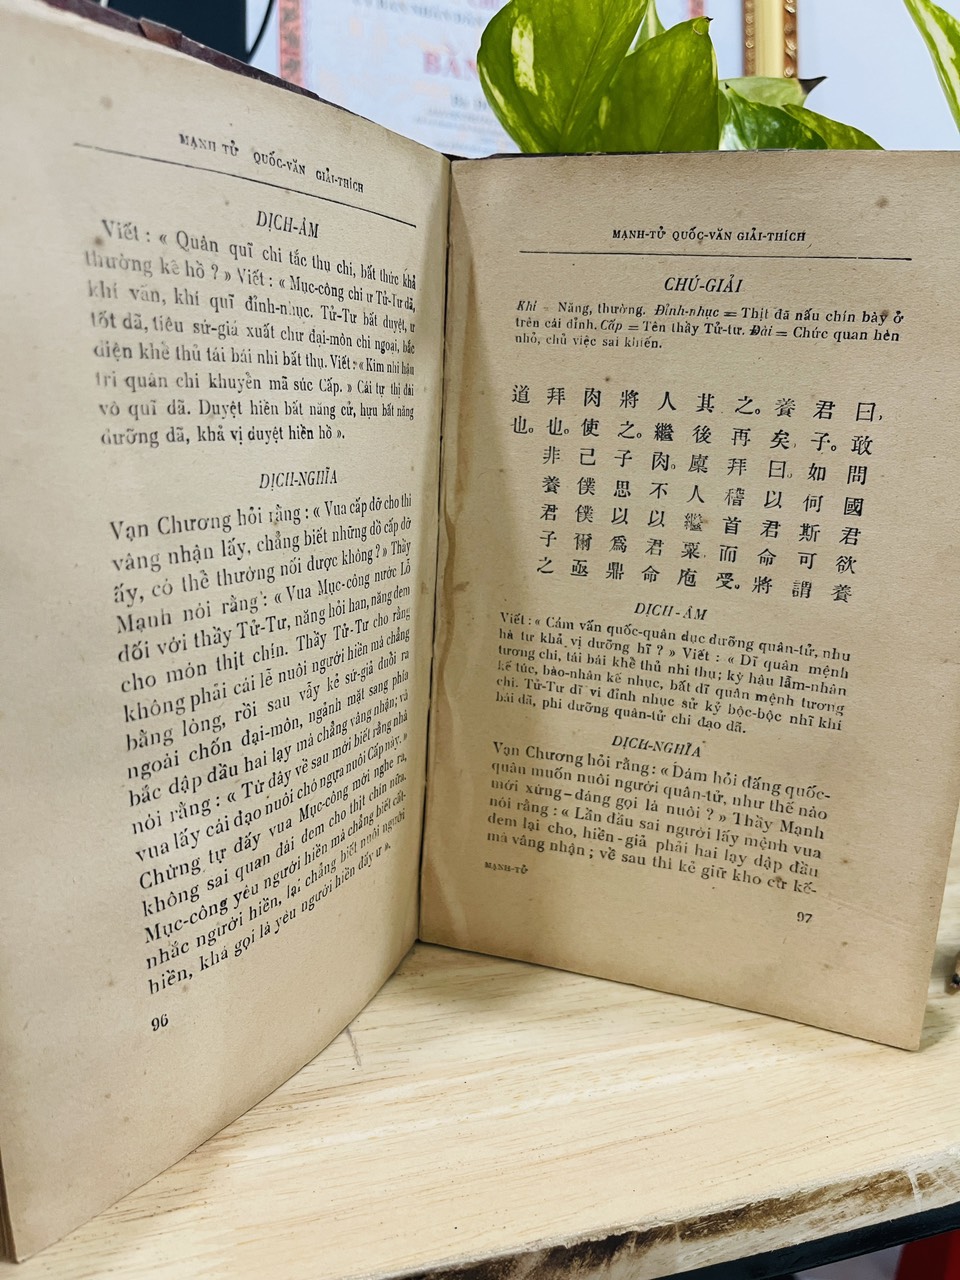 BẰN
MẠNH TỬ QUỐC-VĂN GIẢI-THÍCH
DỊCH-ÂM
Viết : « Quân quĩ chi tắc thụ chi, bất thức khả
thường kế hồ ? » Viết : « Mục-công chi ư Tử-Tư dã,
khí vấn, khí quĩ đỉnh-nhục. Tử-Tư bất duyệt, ư
tốt dã, tiêu sứ-giả xuất chư đại-môn chi ngoại, bắc
diện khể thủ tái bái nhi bất thụ. Viết : « Kim nhi hậu
tri quân chi khuyển mã súc Cấp. » Cái tự thị đài
vô quĩ dã. Duyệt hiền bất năng cử, hựu bất năng
dưỡng dã, khả vị duyệt hiền hồ ».
DỊCH-NGHĨA
Vạn Chương hỏi rằng : « Vua cấp đỡ cho thì
vâng nhận lấy, chẳng biết những đồ cấp đỡ
ấy, có thể thường nối được không ? » Thầy
Mạnh nói rằng : « Vua Mục-công nước Lỗ
đối với thầy Tử-Tư, năng hỏi han, năng đem
cho món thịt chín. Thầy Tử-Tư cho rằng
không phải cái lễ nuôi người hiền mà chẳng
bằng lòng, rồi sau vẫy kẻ sứ-giả đuổi ra
ngoài chốn đại-môn, ngảnh mặt sang phía
bắc dập đầu hai lạy mà chẳng vâng nhận ; và
nói rằng : « Từ đây về sau mới biết rằng nhà
vua lấy cái đạo nuôi chó ngựa nuôi Cấp này. »
Chừng tự đấy vua Mục-công mới nghe ra,
không sai quan đài đem cho thịt chín nữa.
Mục-công yêu người hiền mà chẳng biết cất-
nhắc người hiền, lại chẳng biết nuôi người
hiền, khá gọi là yêu người hiền đấy ư ».
96
MẠNH-TỬ QUỐC-VĂN GIẢI-THÍCH
CHÚ-GIẢI
Khí = Năng, thường. Đỉnh-nhục = Thịt đã nấu chín bày ở
trên cái đỉnh. Cấp = Tên thầy Tử-tư. Đài = Chức quan hèn
nhỏ, chủ việc sai khiến.
曰, 敢問國君欲養
君子。如何斯可謂
養矣。曰以君命將
之。再拜稽首而受。
其後廩人繼粟庖
人繼肉。不以君命
將之。子思以爲鼎
肉使己僕僕爾亟
拜也。非養君子之
道也。
DỊCH-ÂM
Viết : « Cảm vấn quốc-quân dục dưỡng quân-tử, như
hà tư khả vị dưỡng hĩ ? » Viết : « Dĩ quân mệnh
tương chi, tái bái khể thủ nhi thụ ; kỳ hậu lẫm-nhân
kế túc, bào-nhân kế nhục, bất dĩ quân mệnh tương
chi. Tử-Tư dĩ vi đỉnh nhục sử kỷ bộc-bộc nhĩ khí
bái dã, phi dưỡng quân-tử chi đạo dã.
DỊCH-NGHĨA
Vạn Chương hỏi rằng : « Dám hỏi đấng quốc-
quân muốn nuôi người quân-tử, như thế nào
mới xứng-đáng gọi là nuôi ? » Thầy Mạnh
nói rằng : « Lần đầu sai người lấy mệnh vua
đem lại cho, hiền-giả phải hai lạy dập đầu
mà vâng nhận ; về sau thì kẻ giữ kho cứ kế-
MẠNH-TỬ
97